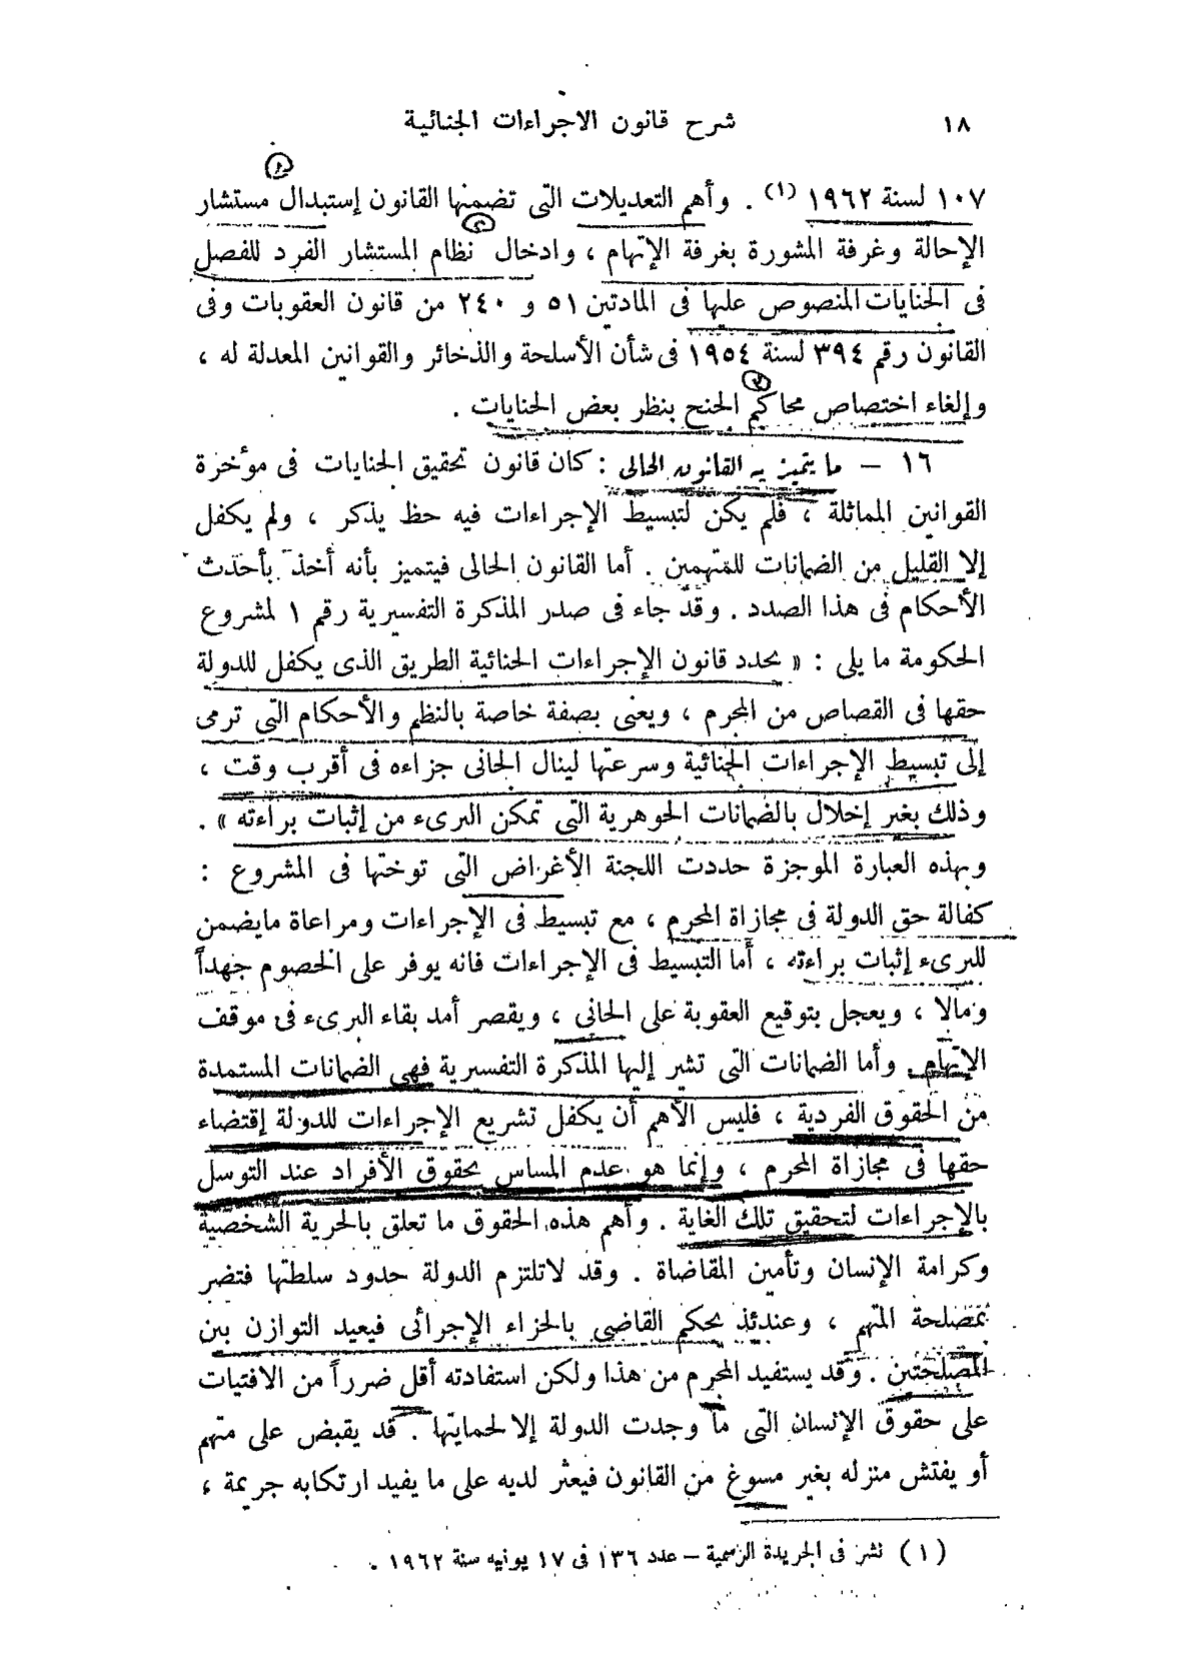 ١٨
شرح قانون الاجراءات الجنائية
١٠٧ لسنة ١٩٦٢ (١) . وأهم التعديلات التى تضمنها القانون إستبدال مستشار
الإحالة وغرفة المشورة بغرفة الإتهام ، وادخال نظام المستشار الفرد للفصل
فى الجنايات المنصوص عليها فى المادتين ٥١ و ٢٤٠ من قانون العقوبات وفى
القانون رقم ٣٩٤ لسنة ١٩٥٤ فى شأن الأسلحة والذخائر والقوانين المعدلة له ،
وإلغاء اختصاص محاكم الجنح بنظر بعض الجنايات .
١٦ – ما يتميز به القانون الحالى : كان قانون تحقيق الجنايات فى مؤخرة
القوانين المماثلة ، فلم يكن لتبسيط الإجراءات فيه حظ يذكر ، ولم يكفل
إلا القليل من الضمانات للمتهمين . أما القانون الحالى فيتميز بأنه أخذ بأحدث
الأحكام فى هذا الصدد . وقد جاء فى صدر المذكرة التفسيرية رقم ١ لمشروع
الحكومة ما يلى : « يحدد قانون الإجراءات الجنائية الطريق الذى يكفل للدولة
حقها فى القصاص من المجرم ، ويعنى بصفة خاصة بالنظم والأحكام التى ترمى
إلى تبسيط الإجراءات الجنائية وسرعتها لينال الجانى جزاءه فى أقرب وقت ،
وذلك بغير إخلال بالضمانات الجوهرية التى تمكن البرىء من إثبات براءته » .
وبهذه العبارة الموجزة حددت اللجنة الأغراض التى توختها فى المشروع :
كفالة حق الدولة فى مجازاة المجرم ، مع تبسيط فى الإجراءات ومراعاة مايضمن
للبرىء إثبات براءته ، أما التبسيط فى الإجراءات فانه يوفر على الخصوم جهداً
ومالا ، ويعجل بتوقيع العقوبة على الجانى ، ويقصر أمد بقاء البرىء فى موقف
الإتهام . وأما الضمانات التى تشير إليها المذكرة التفسيرية فهى الضمانات المستمدة
من الحقوق الفردية ، فليس الأهم أن يكفل تشريع الإجراءات للدولة إقتضاء
حقها فى مجازاة المجرم ، وإنما هو عدم المساس بحقوق الأفراد عند التوسل
بالإجراءات لتحقيق تلك الغاية . وأهم هذه الحقوق ما تعلق بالحرية الشخصية
وكرامة الإنسان وتأمين المقاضاة . وقد لاتلتزم الدولة حدود سلطتها فتضر
بمصلحة المتهم ، وعندئذ يحكم القاضى بالجزاء الإجرائى فيعيد التوازن بين
المصلحتين . وقد يستفيد المجرم من هذا ولكن استفادته أقل ضرراً من الافتيات
على حقوق الإنسان التى ما وجدت الدولة إلا لحمايتها . قد يقبض على متهم
أو يفتش منزله بغير مسوغ من القانون فيعثر لديه على ما يفيد ارتكابه جريمة ،
(١) نشر فى الجريدة الرسمية – عدد ١٣٦ فى ١٧ يونيه سنة ١٩٦٢ .